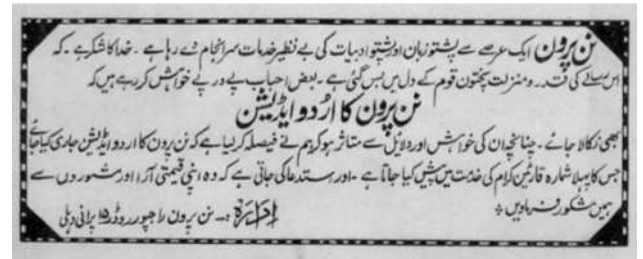 نن پرون ایک عرصے سے پشتو زبان اور پشتو ادبیات کی بے نظیر خدمات سرانجام دے رہا ہے ۔ خدا کا شکر ہے ۔ کہ
اس رسالے کی قدر و منزلت پختون قوم کے دل میں بس گئی ہے ۔ بعض احباب پے در پے خواہش کر رہے ہیں کہ
نن پرون کا اردو ایڈیشن
بھی نکالا جائے ۔ چنانچہ ان کی خواہش اور دلایل سے متاثر ہو کر ہم نے فیصلہ کر لیا ہے کہ نن پرون کا اردو ایڈیشن جاری کیا جائے
جس کا پہلا شمارہ قارئین کرام کی خدمت میں پیش کیا جاتا ہے ۔ اور استدعا کی جاتی ہے کہ وہ اپنی قیمتی آرا اور مشوروں سے
ہمیں مشکور فرماویں ؞
ادارہ :۔ نن پرون راجپور روڈ ۱۵ پرانی دہلی